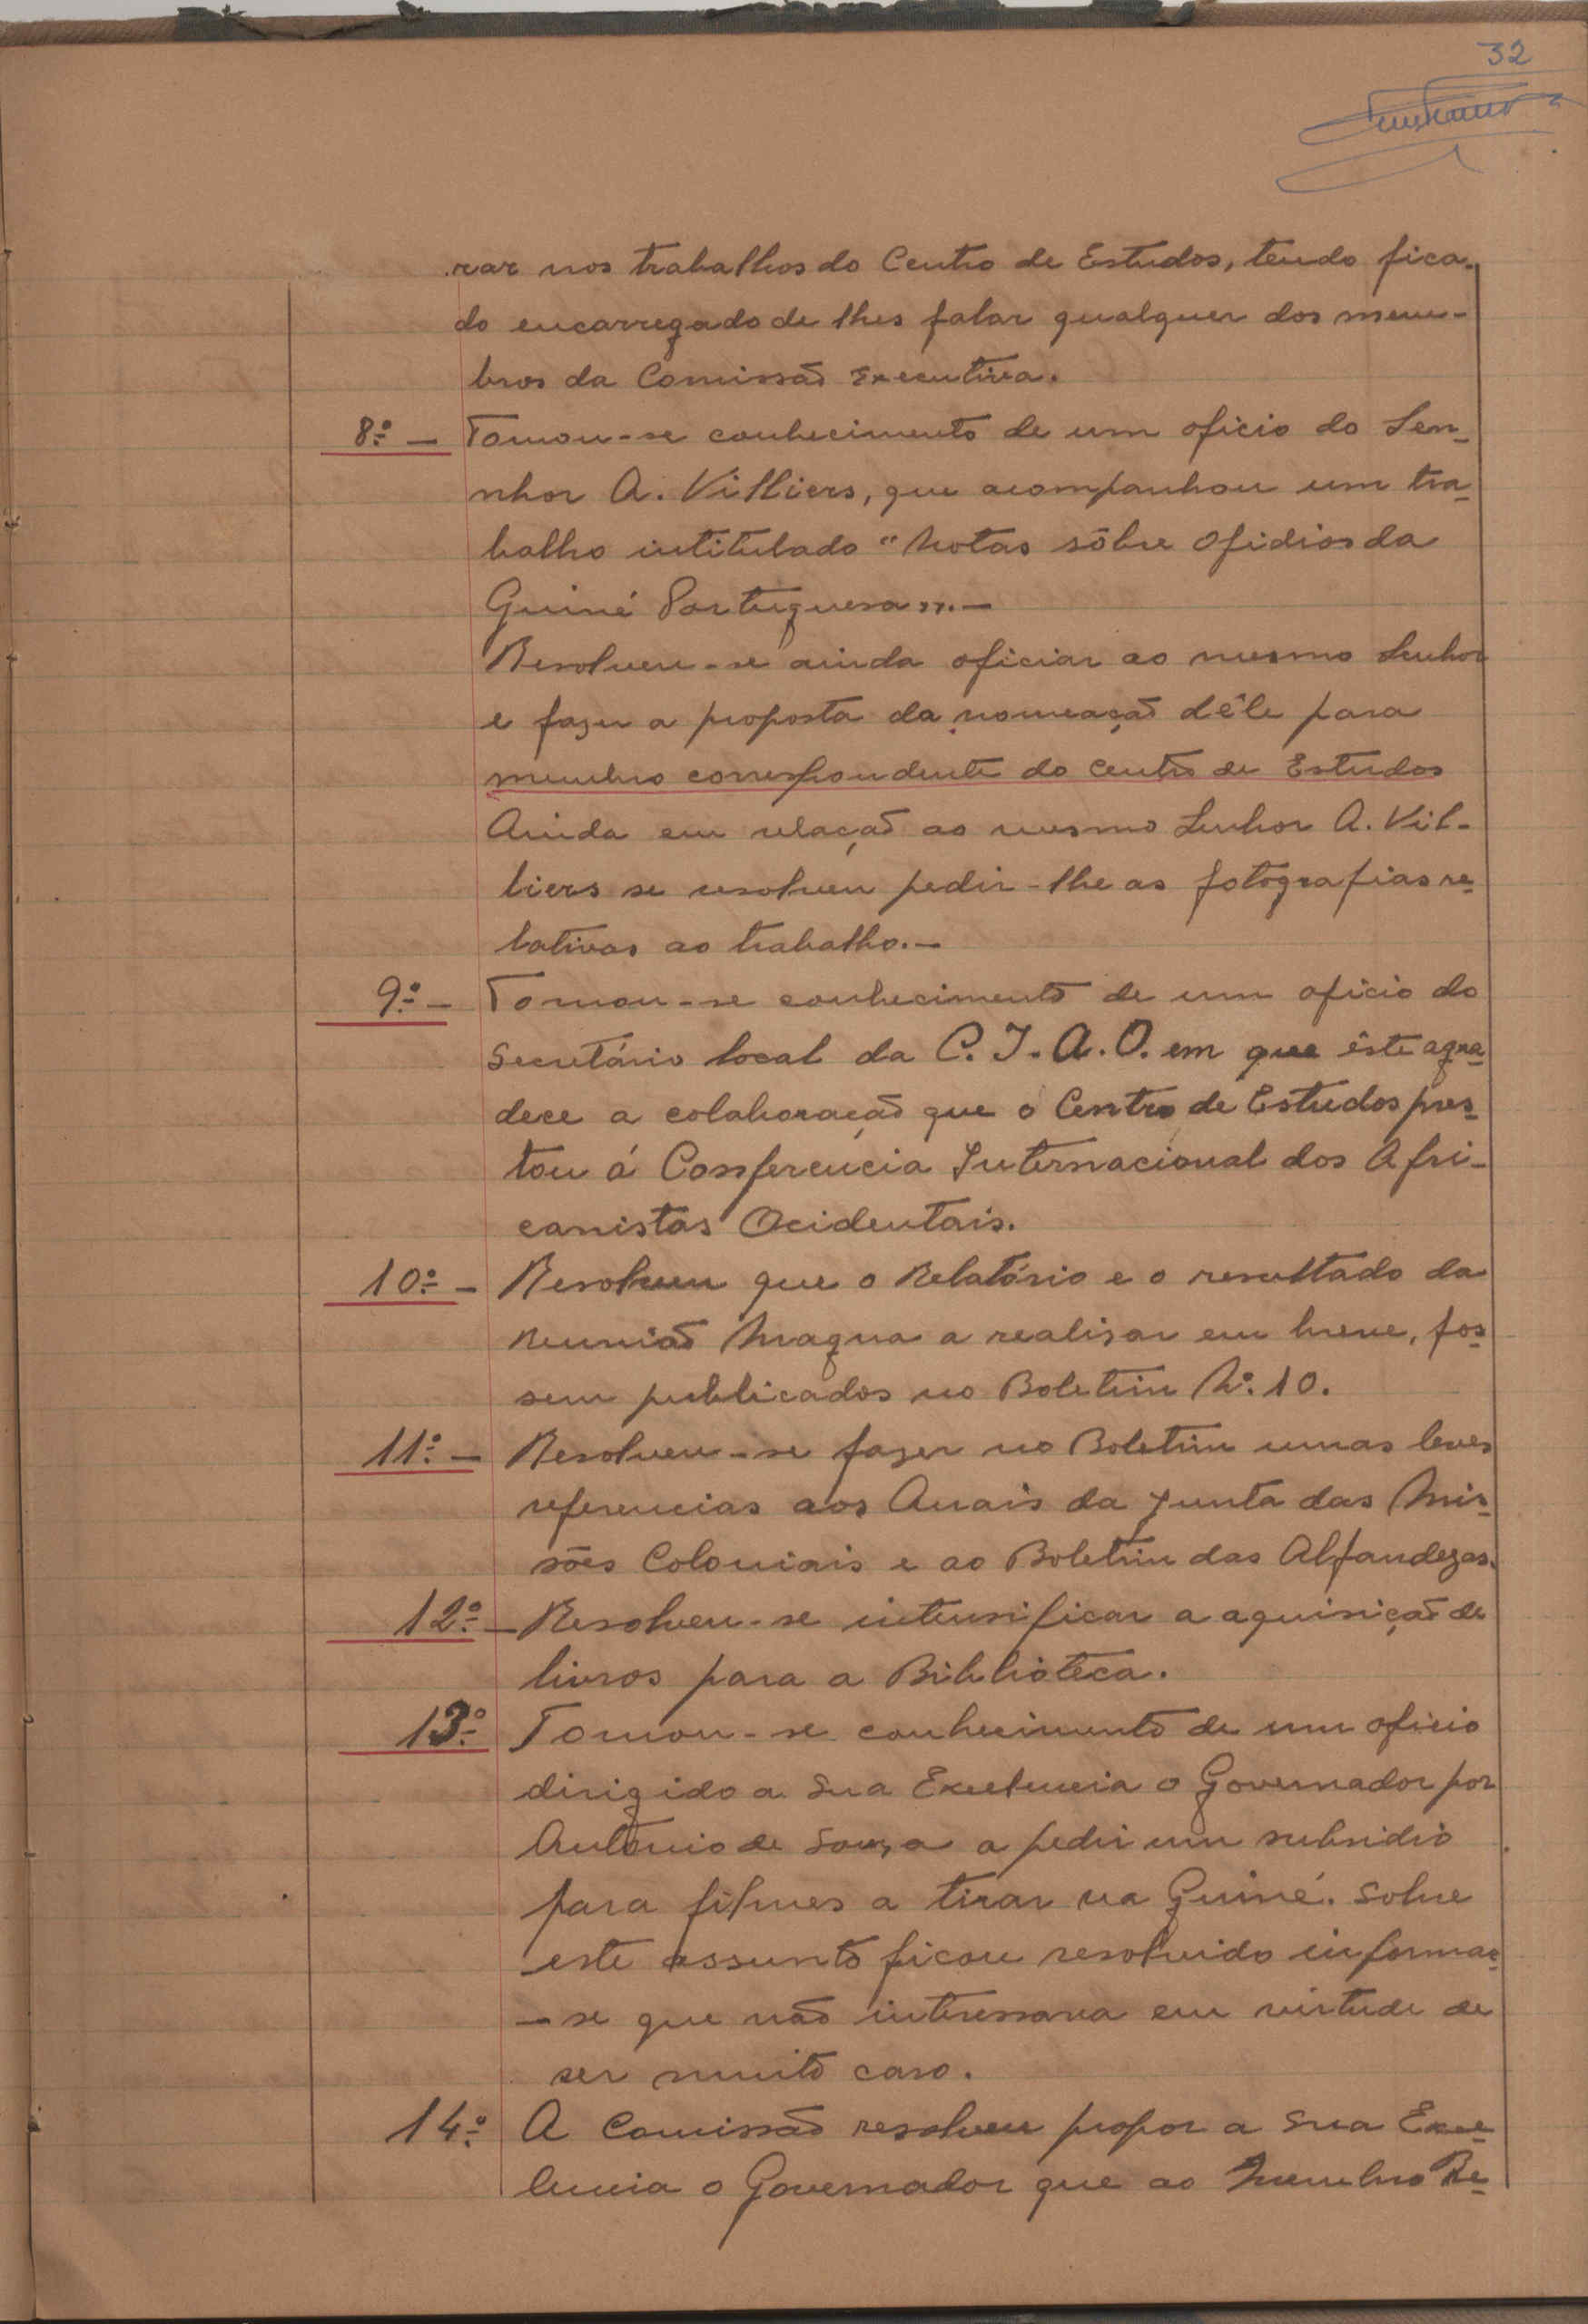 32
rar nos trabalhos do Centro de Estudos, tendo fica-
do encarregado de lhes falar qualquer dos mem-
bros da Comissão Executiva.
8.º — Tomou-se conhecimento de um oficio do Sen-
nhor A. Villiers, que acompanhou um tra-
balho intitulado "Notas sôbre Ofidios da
Guiné Portuguesa".—
Resolveu-se ainda oficiar ao mesmo Senhor
e fazer a proposta da nomeação dêle para
membro correspondente do Centro de Estudos
Ainda em relação ao mesmo Senhor A. Vil-
liers se resolveu pedir-lhe as fotografias re-
lativas ao trabalho.—
9.º — Tomou-se conhecimento de um oficio do
Secretário local da C. I. A. O. em que êste agra-
dece a colaboração que o Centro de Estudos pres-
tou á Conferência Internacional dos Afri-
canistas Ocidentais.
10.º — Resolveu que o Relatório e o resultado da
Reunião Magna a realisar em breve, fos-
sem publicados no Boletim N.º 10.
11.º — Resolveu-se fazer no Boletim umas leves
referencias aos Anais da Junta das Mis-
sões Coloniais e ao Boletim das Alfandegas.
12.º — Resolveu-se intensificar a aquisição de
livros para a Biblioteca.
13.º Tomou-se conhecimento de um oficio
dirigido a Sua Excelencia o Governador por
António de Sousa a pedir um subsidio
para filmes a tirar na Guiné. Sobre
este assunto ficou resolvido informar-
-se que não interessava em virtude de
ser muito caro.
14.º A Comissão resolveu propor a Sua Exce-
lencia o Governador que ao Membro Re-